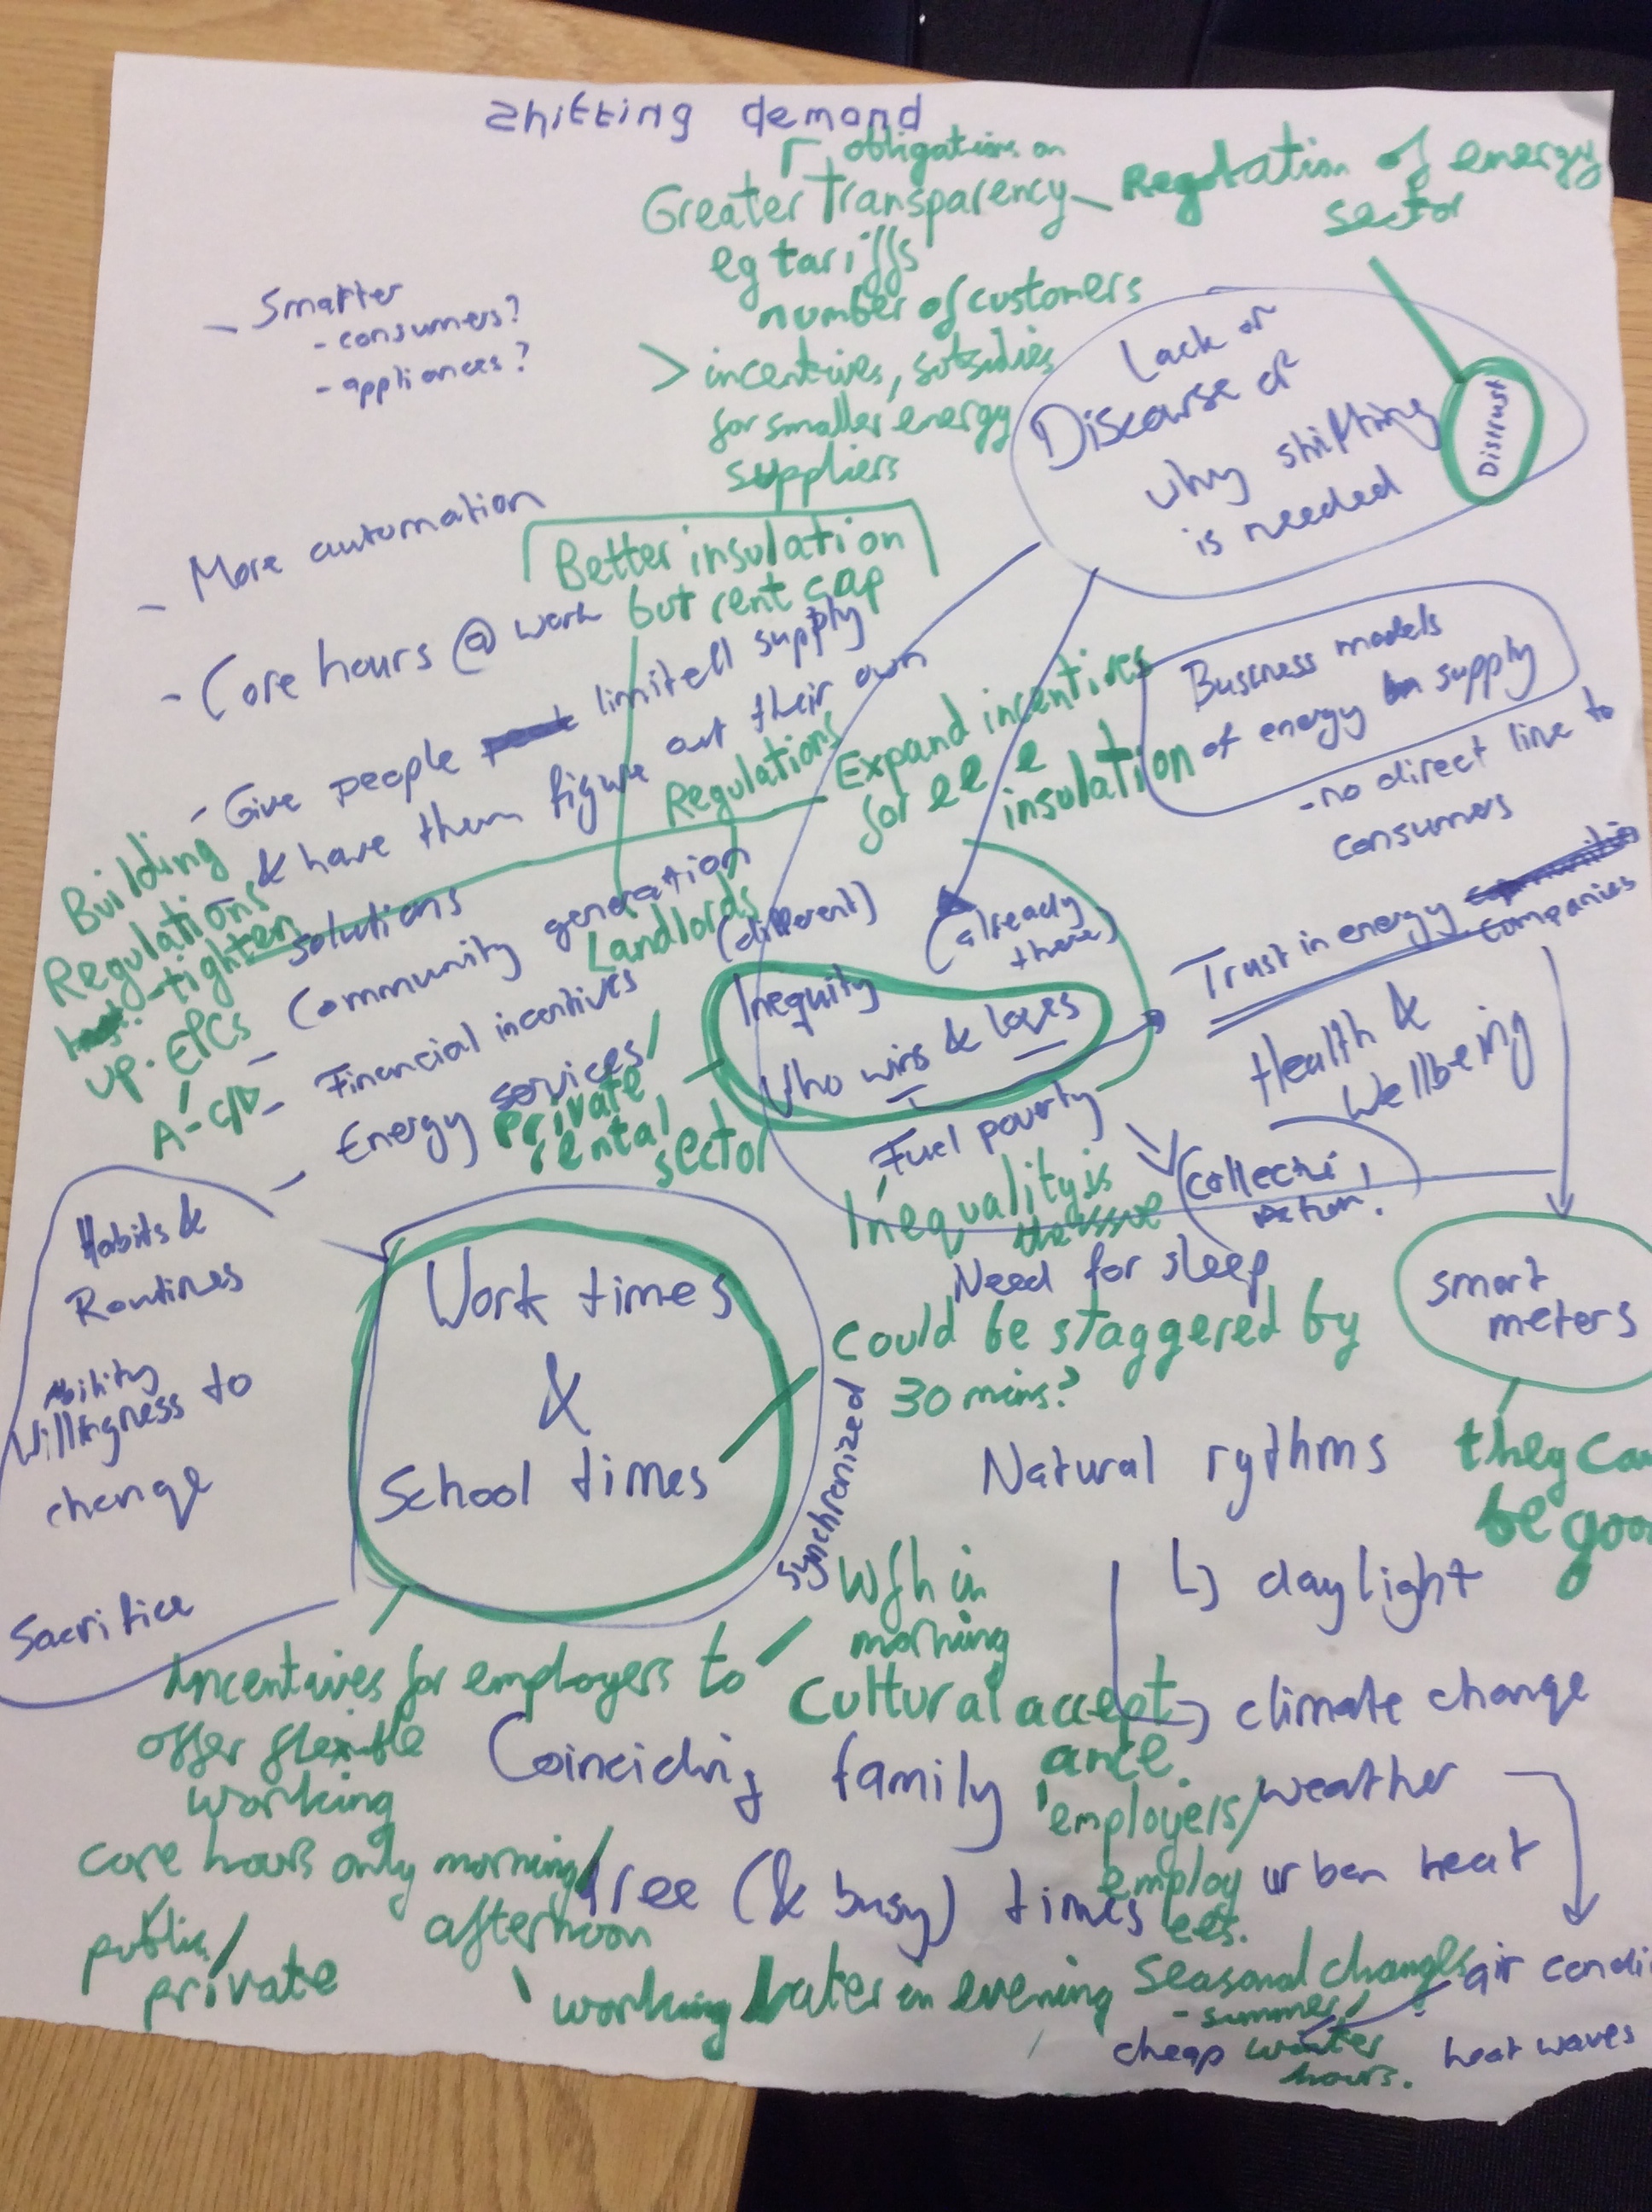 Shifting demand
obligations on
Greater Transparency
eg tariffs
number of customers
Regulation of energy
sector
> incentives, subsidies
for smaller energy
suppliers
- Smarter
- consumers?
- appliances?
Lack of
Discourse of
why shifting
is needed
Distrust
- More automation
Better insulation
but rent cap
- Core hours @ work
- Give people limited supply
& have them figure out their own
solutions
Regulations
Landlords
Expand incentives
for
insulation
Business models
of energy supply
- no direct line to
consumers
Building
Regulations
- tighten
up. EPCs
A - C/D
- Community generation
- Financial incentives
- Energy services/
Private
rental
sector
(different)
(already
there)
Inequity
Who wins & loses
Fuel poverty
Inequality is
the issue
Trust in energy
companies
Health &
Wellbeing
Collective
action!
smart
meters
they can
be good
Habits &
Routines
Ability
Willingness to
change
Sacrifice
Work times
&
School times
synchronized
Need for sleep
Could be staggered by
30 mins?
Natural rythms
↳ daylight
↳ climate change
weather
urban heat
air condi
heat waves
cheap
Wfh in
morning
Cultural accept
ance.
employers/
employ
ees.
Incentives for employers to
offer flexible
working
core hours only morning/
afternoon
public/
private
Coinciding family
free (& busy) times
working later in evening
Seasonal changes
- summer/
winter
hours.